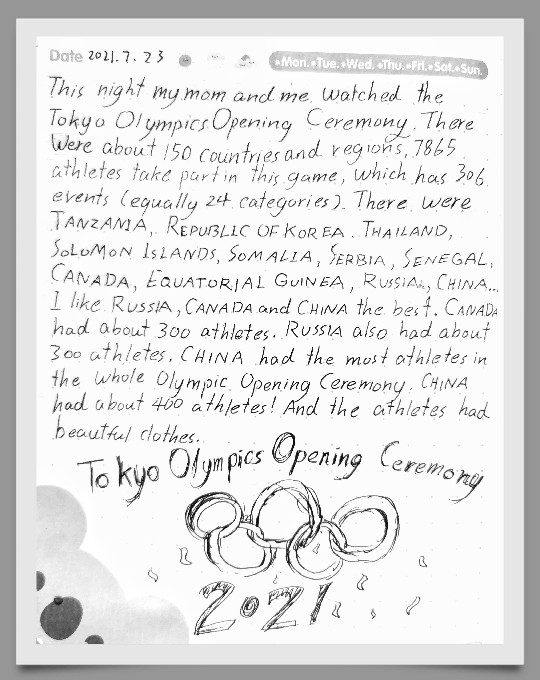 Date 2021.7.23
•Mon. •Tue. •Wed. •Thu. •Fri. •Sat. •Sun.
This night my mom and me watched the
Tokyo Olympics Opening Ceremony. There
were about 150 countries and regions, 7865
athletes take part in this game, which has 306
events (equally 24 categories). There were
TANZANIA, REPUBLIC OF KOREA. THAILAND,
SOLOMON ISLANDS, SOMALIA, SERBIA, SENEGAL,
CANADA, EQUATORIAL GUINEA, RUSSIA, CHINA...
I like RUSSIA, CANADA and CHINA the best. CANADA
had about 300 athletes. RUSSIA also had about
300 athletes. CHINA had the most athletes in
the whole Olympic Opening Ceremony. CHINA
had about 400 athletes! And the athletes had
beautful clothes.
Tokyo Olympics Opening Ceremony
2021